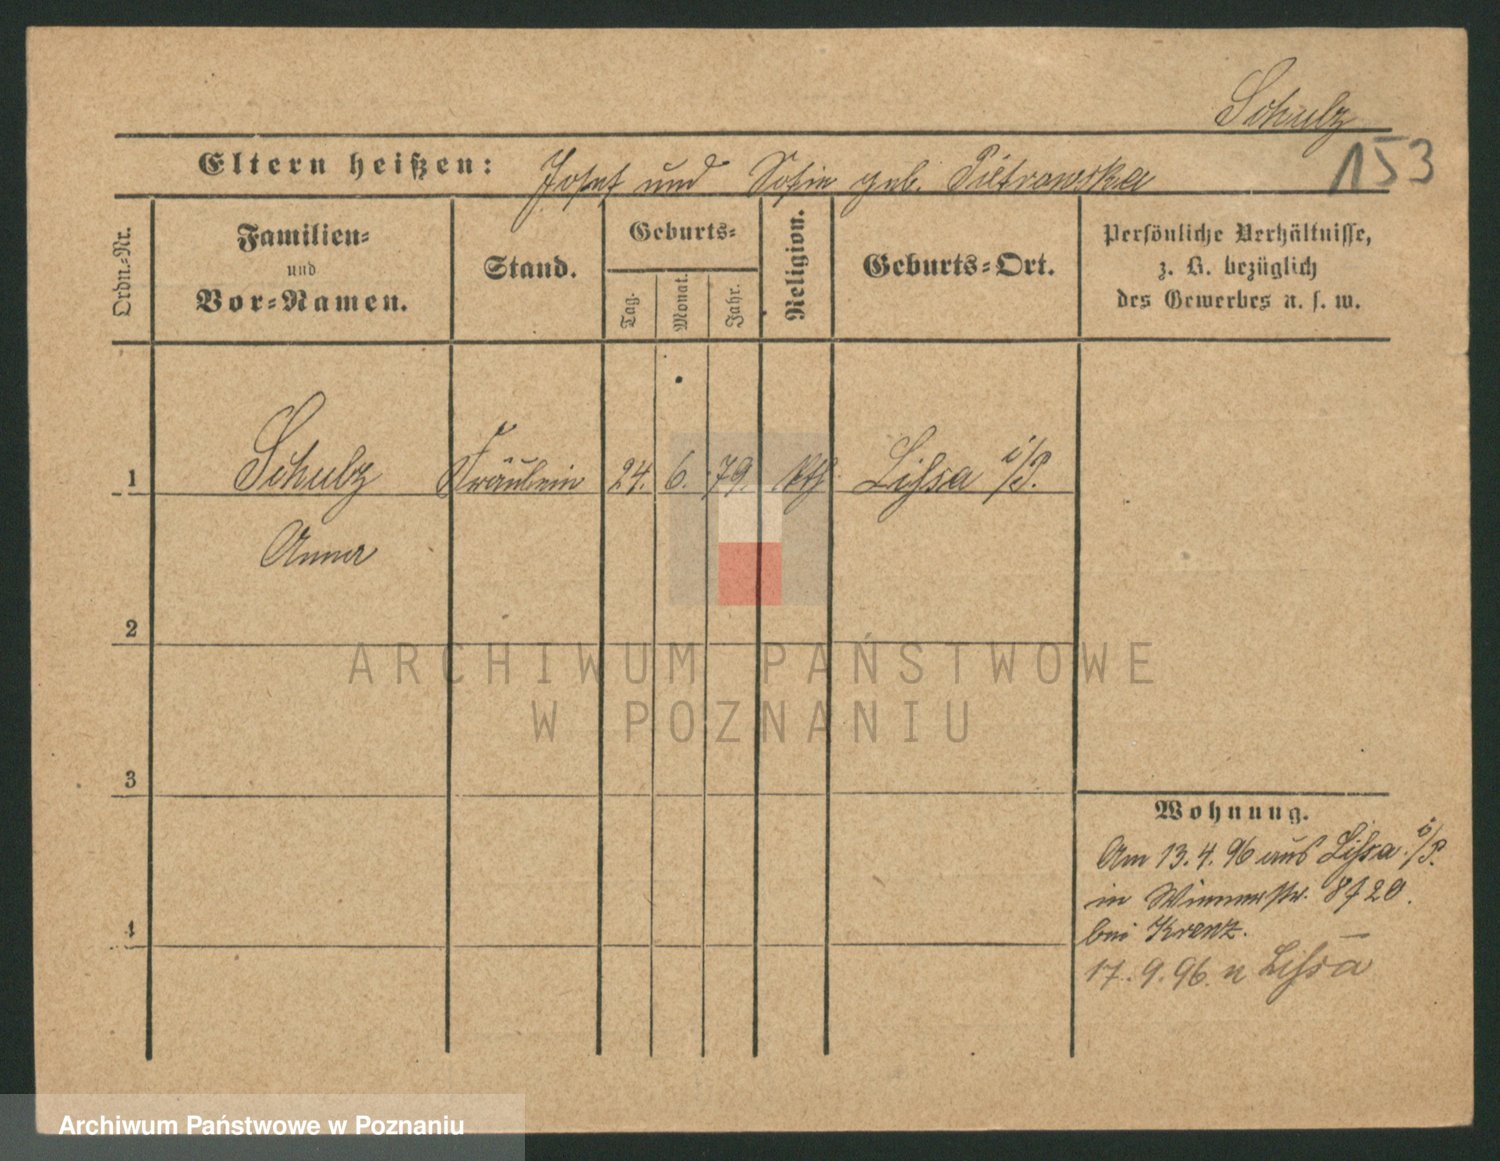 Schulz
153
Eltern heißen: Josef und Sofie geb. Pietrowska
Ordn.-Nr.
Familien-
und
Vor-Namen.
Stand.
Geburts-
Tag.
Monat.
Jahr.
Religion.
Geburts-Ort.
Persönliche Verhältnisse,
z. B. bezüglich
des Gewerbes u. s. w.
1 Schulz Fräulein 24. 6. 79. kth Lissa i/P.
Anna
2
ARCHIWUM PAŃSTWOWE
W POZNANIU
3
Wohnung.
Am 13.4.96 aus Lissa i/P.
in Wienerstr. 8 f 20.
bei Krenz.
4
17.9.96. n Lissa
Archiwum Państwowe w Poznaniu